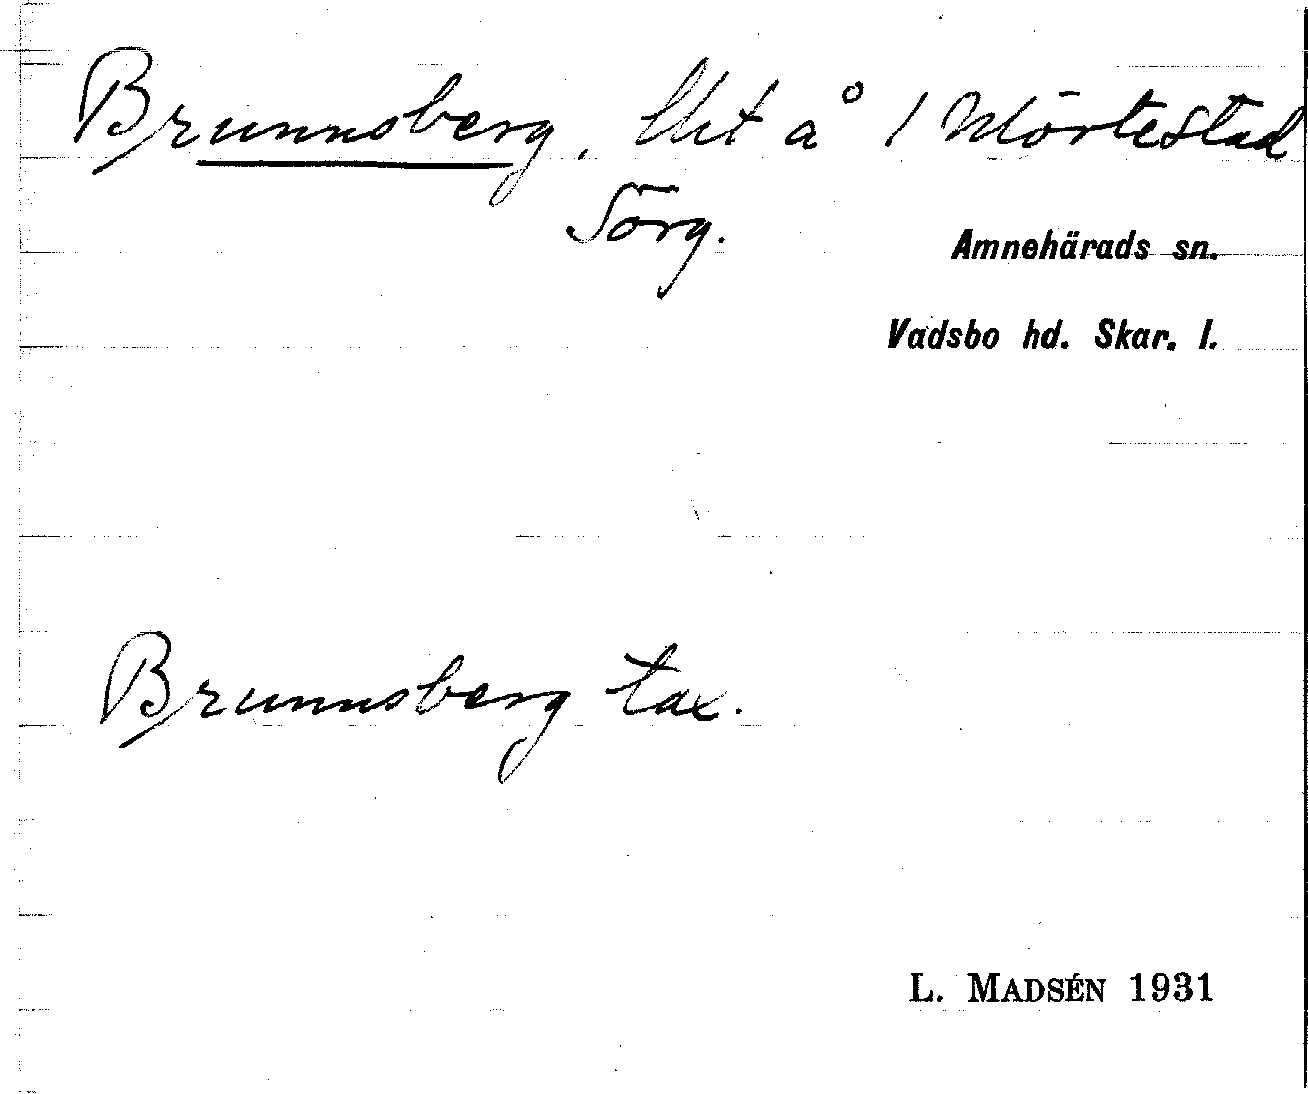 Brunnsberg, lht å 1 Mörtestad
Sörg.
Amnehärads sn.
Vadsbo hd. Skar. l.
Brunnsberg tax.
L. MADSÉN 1931